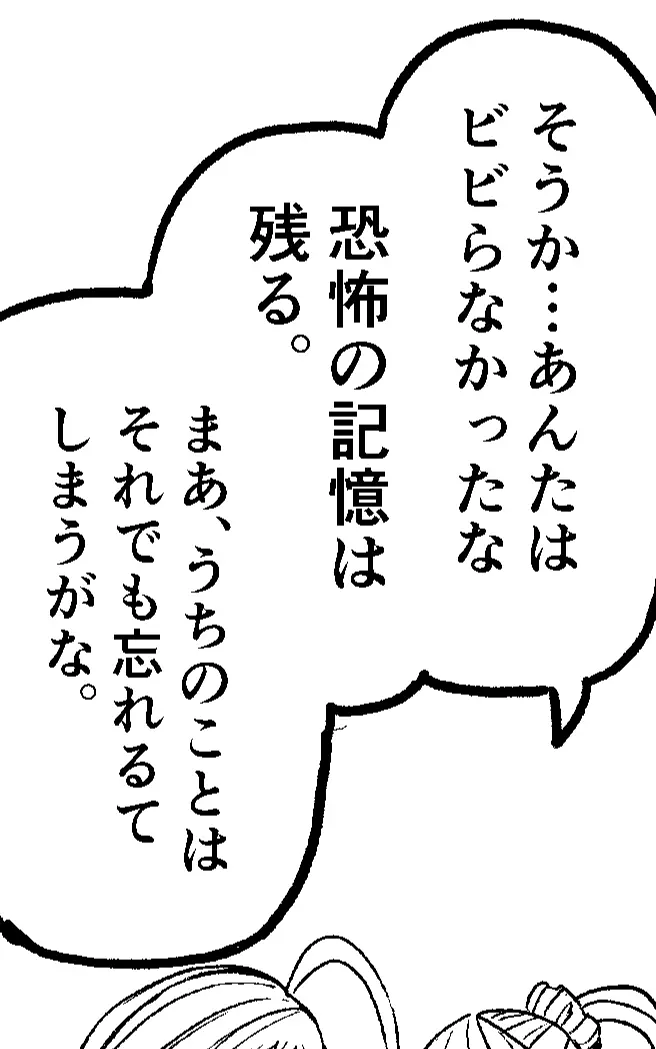 そうか…あんたは
ビビらなかったな
恐怖の記憶は
残る。
まあ、うちのことは
それでも忘れるて
しまうがな。